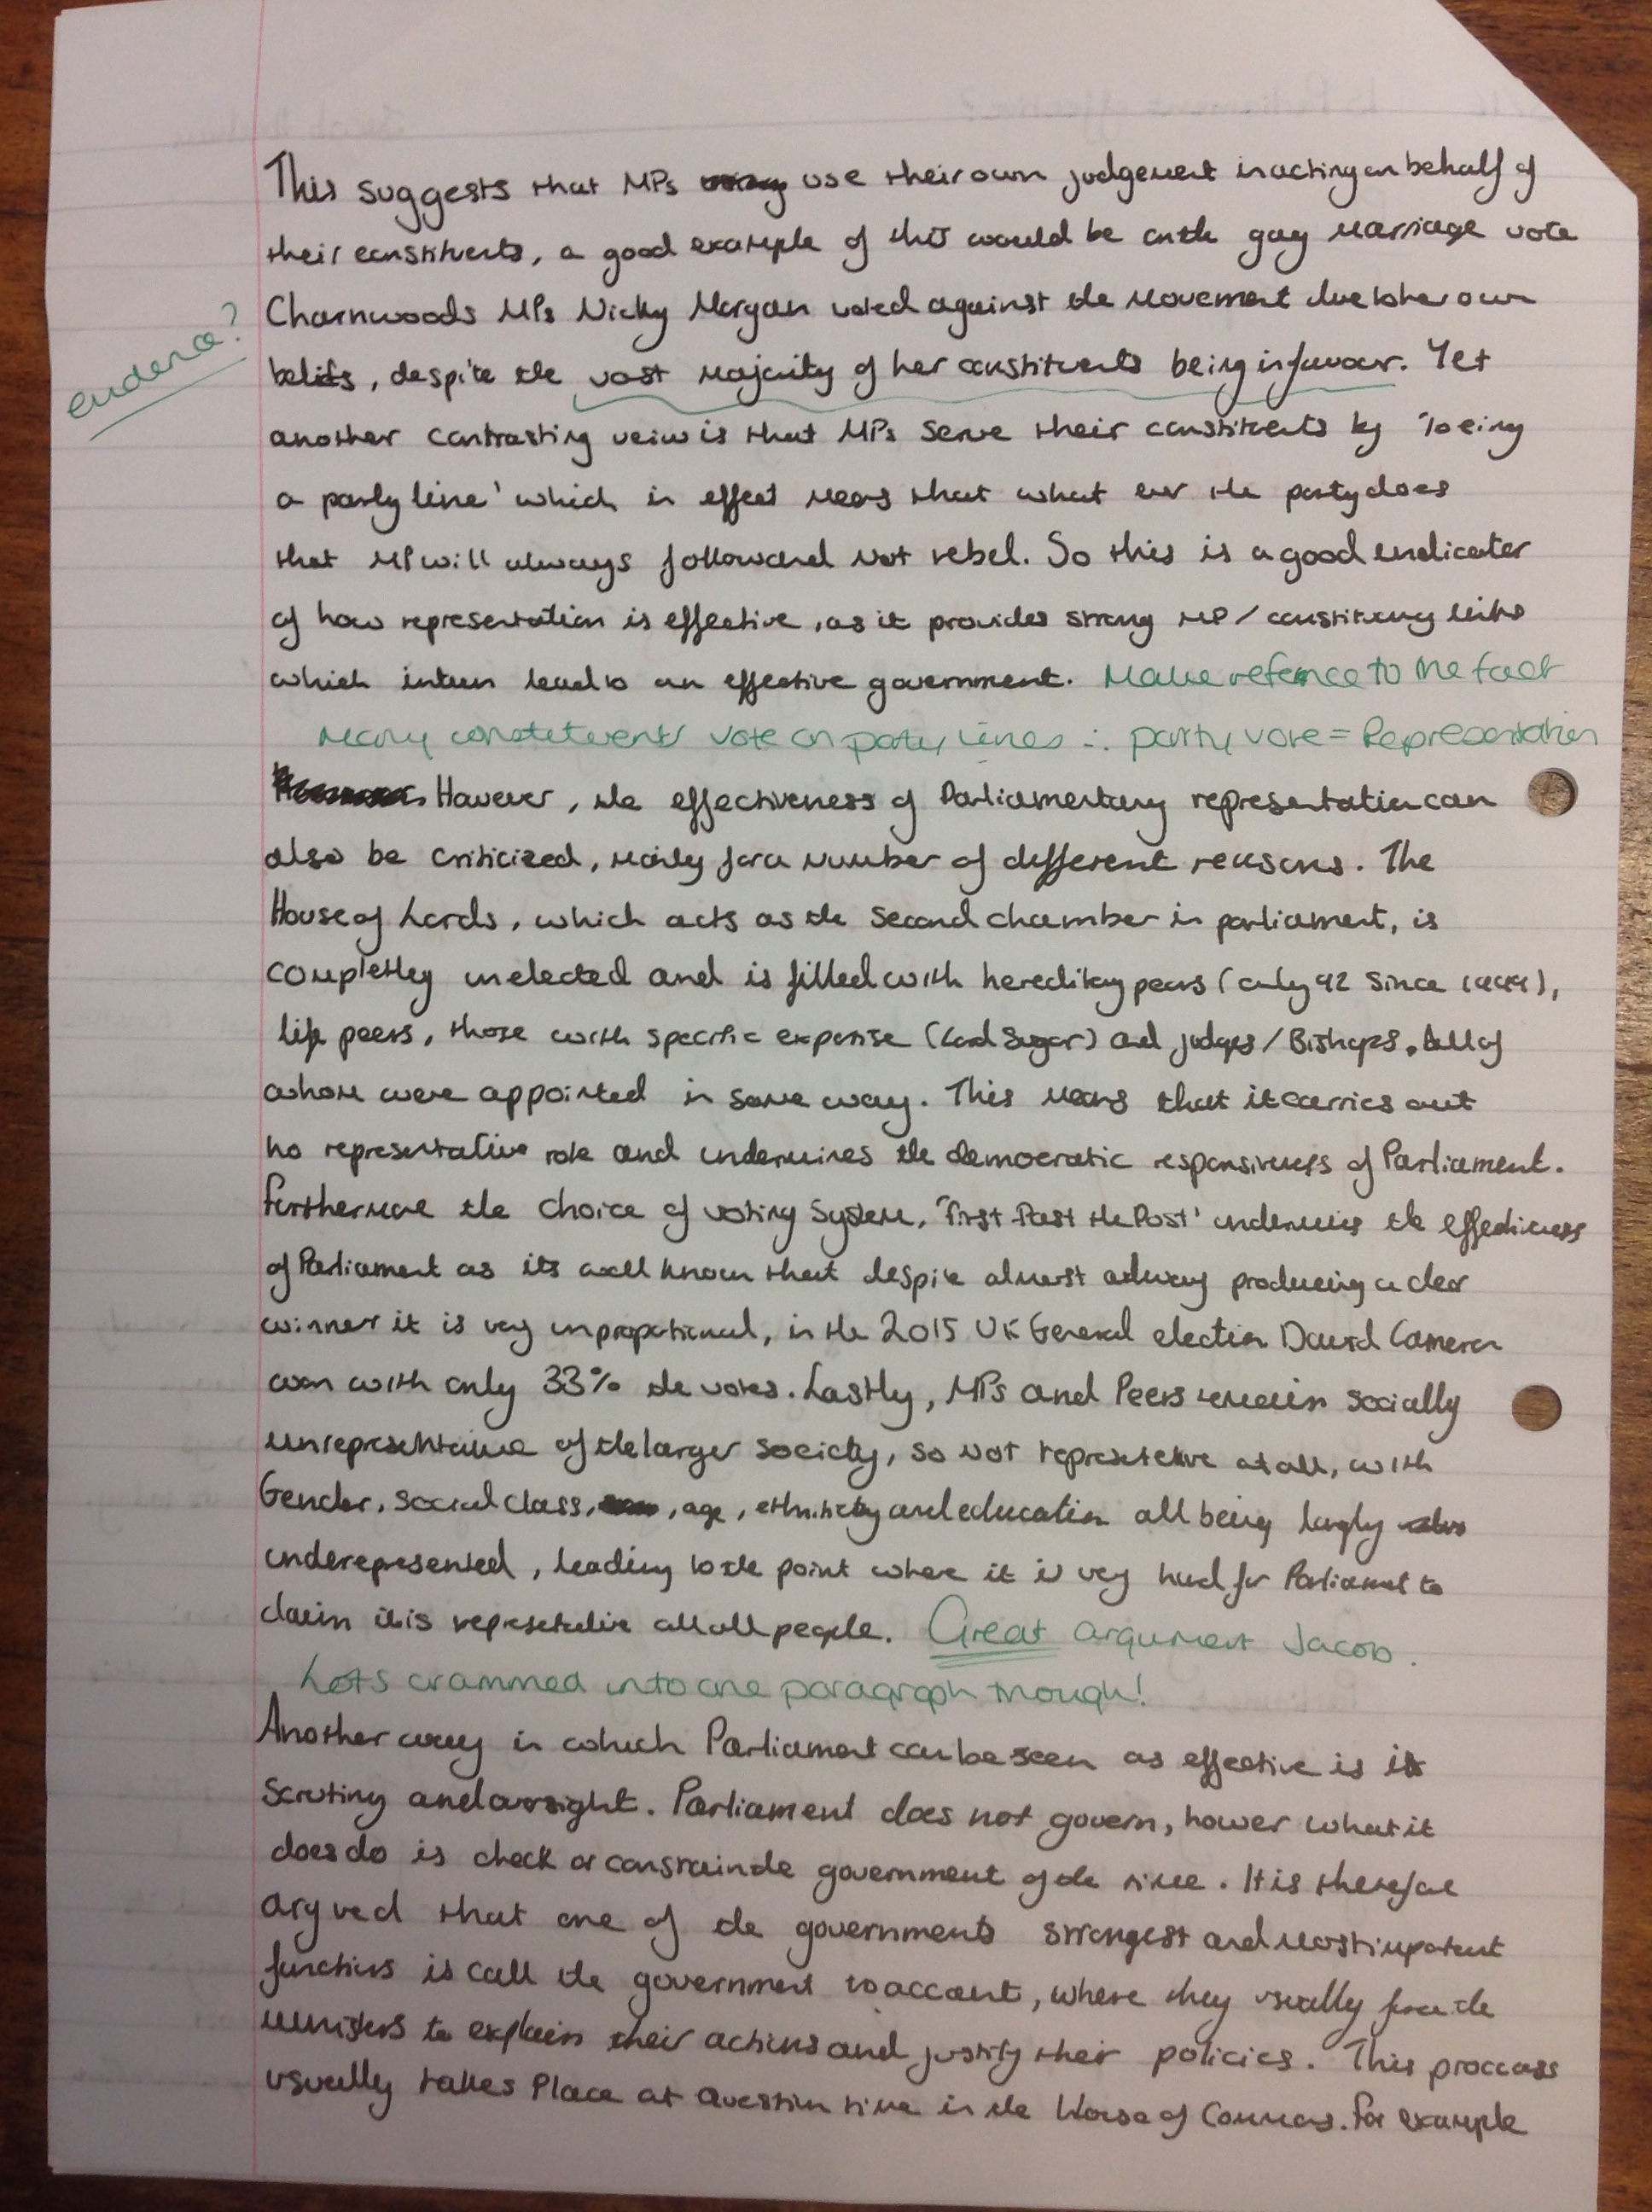 This suggests that MPs use their own judgement in acting on behalf of
their constituents, a good example of this would be on the gay marriage vote
Charnwoods MPs Nicky Morgan voted against the movement due to her own
evidence?
beliefs, despite the vast majority of her constituents being in favour. Yet
another contrasting veiw is that MPs serve their constituents by 'toeing
a party line' which in effect means that what ever the party does
that MP will always follow and not rebel. So this is a good indicater
of how representation is effective, as it provides strong MP/constituency links
which inturn leads to an effective government. Make refernce to the fact
many constetuents vote on party lines ∴ party vote = Representation
However, the effectiveness of Parliamentary representation can
also be criticized, mainly for a number of different reasons. The
House of Lords, which acts as the second chamber in parliament, is
completley unelected and is filled with hereditary peers (only 92 since 1999),
life peers, those with specific expertise (Lord Sugar) and judges/Bishops. All of
whom were appointed in some way. This means that it carries out
no representative role and undermines the democratic responsiveness of Parliament.
Furthermore the choice of voting system, 'First Past the Post' undermines the effectiveness
of Parliament as its well known that despite almost always producing a clear
winner it is very unproportional, in the 2015 UK General election David Cameron
won with only 33% the votes. Lastly, MPs and Peers remain socially
unrepresentative of the larger society, so not representative at all, with
Gender, social class, age, ethnicity and education all being largly
underepresented, leading to the point where it is very hard for Parliament to
claim it is representative all people. Great argument Jacob.
Lots crammed into one paragraph though!
Another way in which Parliament can be seen as effective is its
scrutiny and oversight. Parliament does not govern, hower what it
does do is check or constrain the government of the time. It is therefore
argued that one of the governments strongest and most important
functions is call the government to account, where they usually force the
ministers to explain their actions and justify their policies. This proccess
usually takes place at Question time in the House of Commons. For example